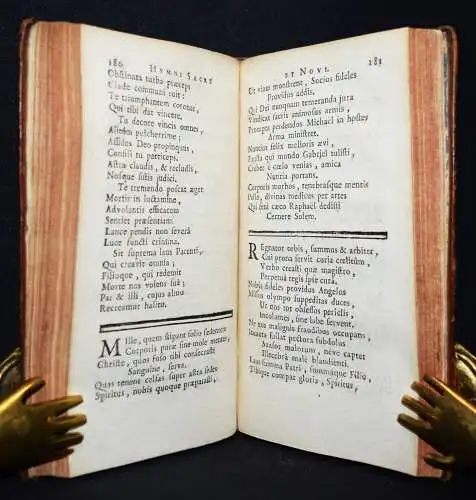 180 HYMNI SACRI
Obstinata turba præceps
Clade communi ruit:
Te triumphantem coronat,
Qui tibi dat vincere,
Tu decore vincis omnes,
pulcherrime;
Assides Deo propinquus,
Consili tu particeps.
Astra claudis, & recludis,
Nosque sistis judici.
Te tremendo poscat æger
Mortis in luctamine,
Advolantis efficacem
Sentiet præsentiam.
Lance pendis non severâ
Luce functi crimina.
Sit suprema laus Parenti,
Qui creavit omnia;
Filioque, qui redemit
Morte nos volens suâ;
Par & illi, cujus almo
Recreamur halitu.
MIlle, quem stipant solio sedentem
Corporis puræ sine mole mentes,
Christe, quos fuso tibi consecrasti
Sanguine, serva.
Quas tenent celsas super astra sedes
Spiritus, nobis quoque præparasti,
ET NOVI. 181
Ut viam monstrent, Socios fideles
Providus addis.
Qui Dei nunquam temeranda jura
Vindicat sævis animosus armis,
Princeps perdendos Michael in hostes
Arma ministret.
Nuntius felix melioris ævi,
Pacta qui mundo Gabriel tulisti,
Creber è cœlo venias, amica
Nuntia portans.
Corporis morbos, tenebrasque mentis
Pelle, divinas medicus per artes
Qui seni cæco Raphaël dedisti
Cernere Solem.
REgnator orbis, summus & arbiter,
Cui prona servit curia cœlitum,
Verbo creasti quæ magistro,
Perpetuâ regis ipse curâ.
Nobis fideles providus Angelos
Missos olympo suppeditas duces,
Ut nos tot obsessos periclis
Incolumes, sine labe servent.
Ne nos malignis fraudibus occupans,
Incauta fallat pectora subdolus
Suasor malorum, neve captet
Illecebrâ malè blandienti.
Laus summa Patri, summaque Filio,
Tibique compar gloria, Spiritus,